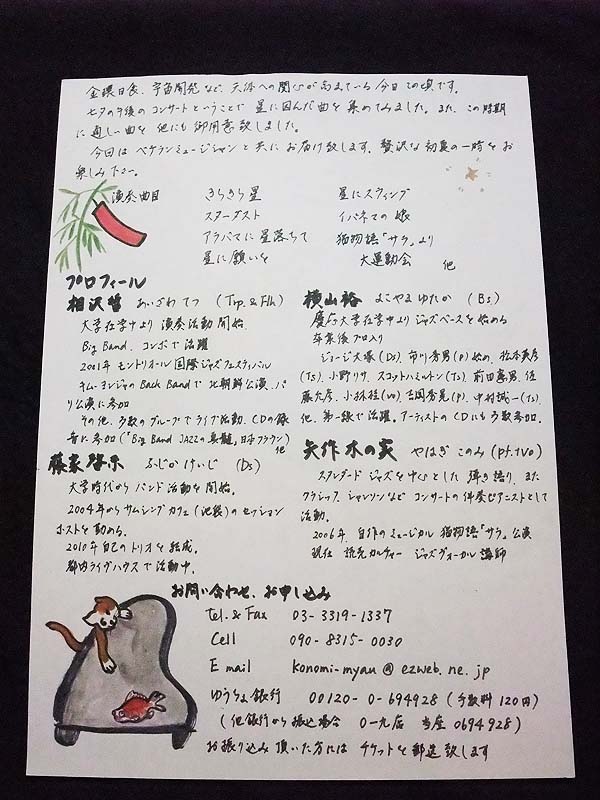 金環日食、宇宙開発など、天体への関心が高まっている今日この頃です。
七夕の午後のコンサートということで 星に因んだ曲を集めてみました。また、この時期
に適しい曲を他にも御用意致しました。
今回はベテランミュージシャンと共にお届け致します、贅沢な初夏の一時をお
楽しみ下さい。
演奏曲目
きらきら星
星にスウィング
スターダスト
イパネマの娘
アラバマに星落ちて
猫物語「サラ」より
星に願いを
大運動会 他
プロフィール
相沢哲 あいざわてつ (Trp.&Flh)
大学在学中より演奏活動開始
Big Band、コンボで活躍
2001年 モントリオール国際ジャズフェスティバル
キム・ヨンジャのBack Bandで北朝鮮公演、パ
リ公演に参加
その他、多数のグループでライブ活動、CDの録
音に参加(「Big Band JAZZの真髄」日本クラウン)他
横山裕 よこやまゆたか (Bs)
慶応大学在学中よりジャズベースを始める
卒業後プロ入り
ジョージ大塚(Ds)、市川秀男(P)始め、松本英彦
(Ts)、小野リサ、スコットハミルトン(Ts)、前田憲男、佐
藤允彦、小林桂(Vo)、吉岡秀晃(P)、中村誠一(Ts)、
他、第一線で活躍。アーティストのCDにも多数参加。
藤家啓示 ふじかけいじ (Ds)
大学時代からバンド活動を開始。
2004年からサムシングカフェ(池袋)のセッション
ホストを勤める。
2010年自己のトリオを結成。
都内ライブハウスで活動中。
矢作木の実 やはぎこのみ (Pf.&Vo)
スタンダードジャズを中心とした弾き語り、また
クラシック、シャンソンなどコンサートの伴奏ピアニストとして
活動。
2006年、自作のミュージカル 猫物語「サラ」公演
現在 読売カルチャー ジャズヴォーカル講師
お問い合わせ、お申し込み
Tel.&Fax 03-3319-1337
Cell 090-8315-0030
E mail konomi-myau@ezweb.ne.jp
ゆうちょ銀行 00120-0-694928 (手数料120円)
(他銀行から振込場合 0一九店 当座0694928)
お振り込み頂いた方には チケットを郵送致します